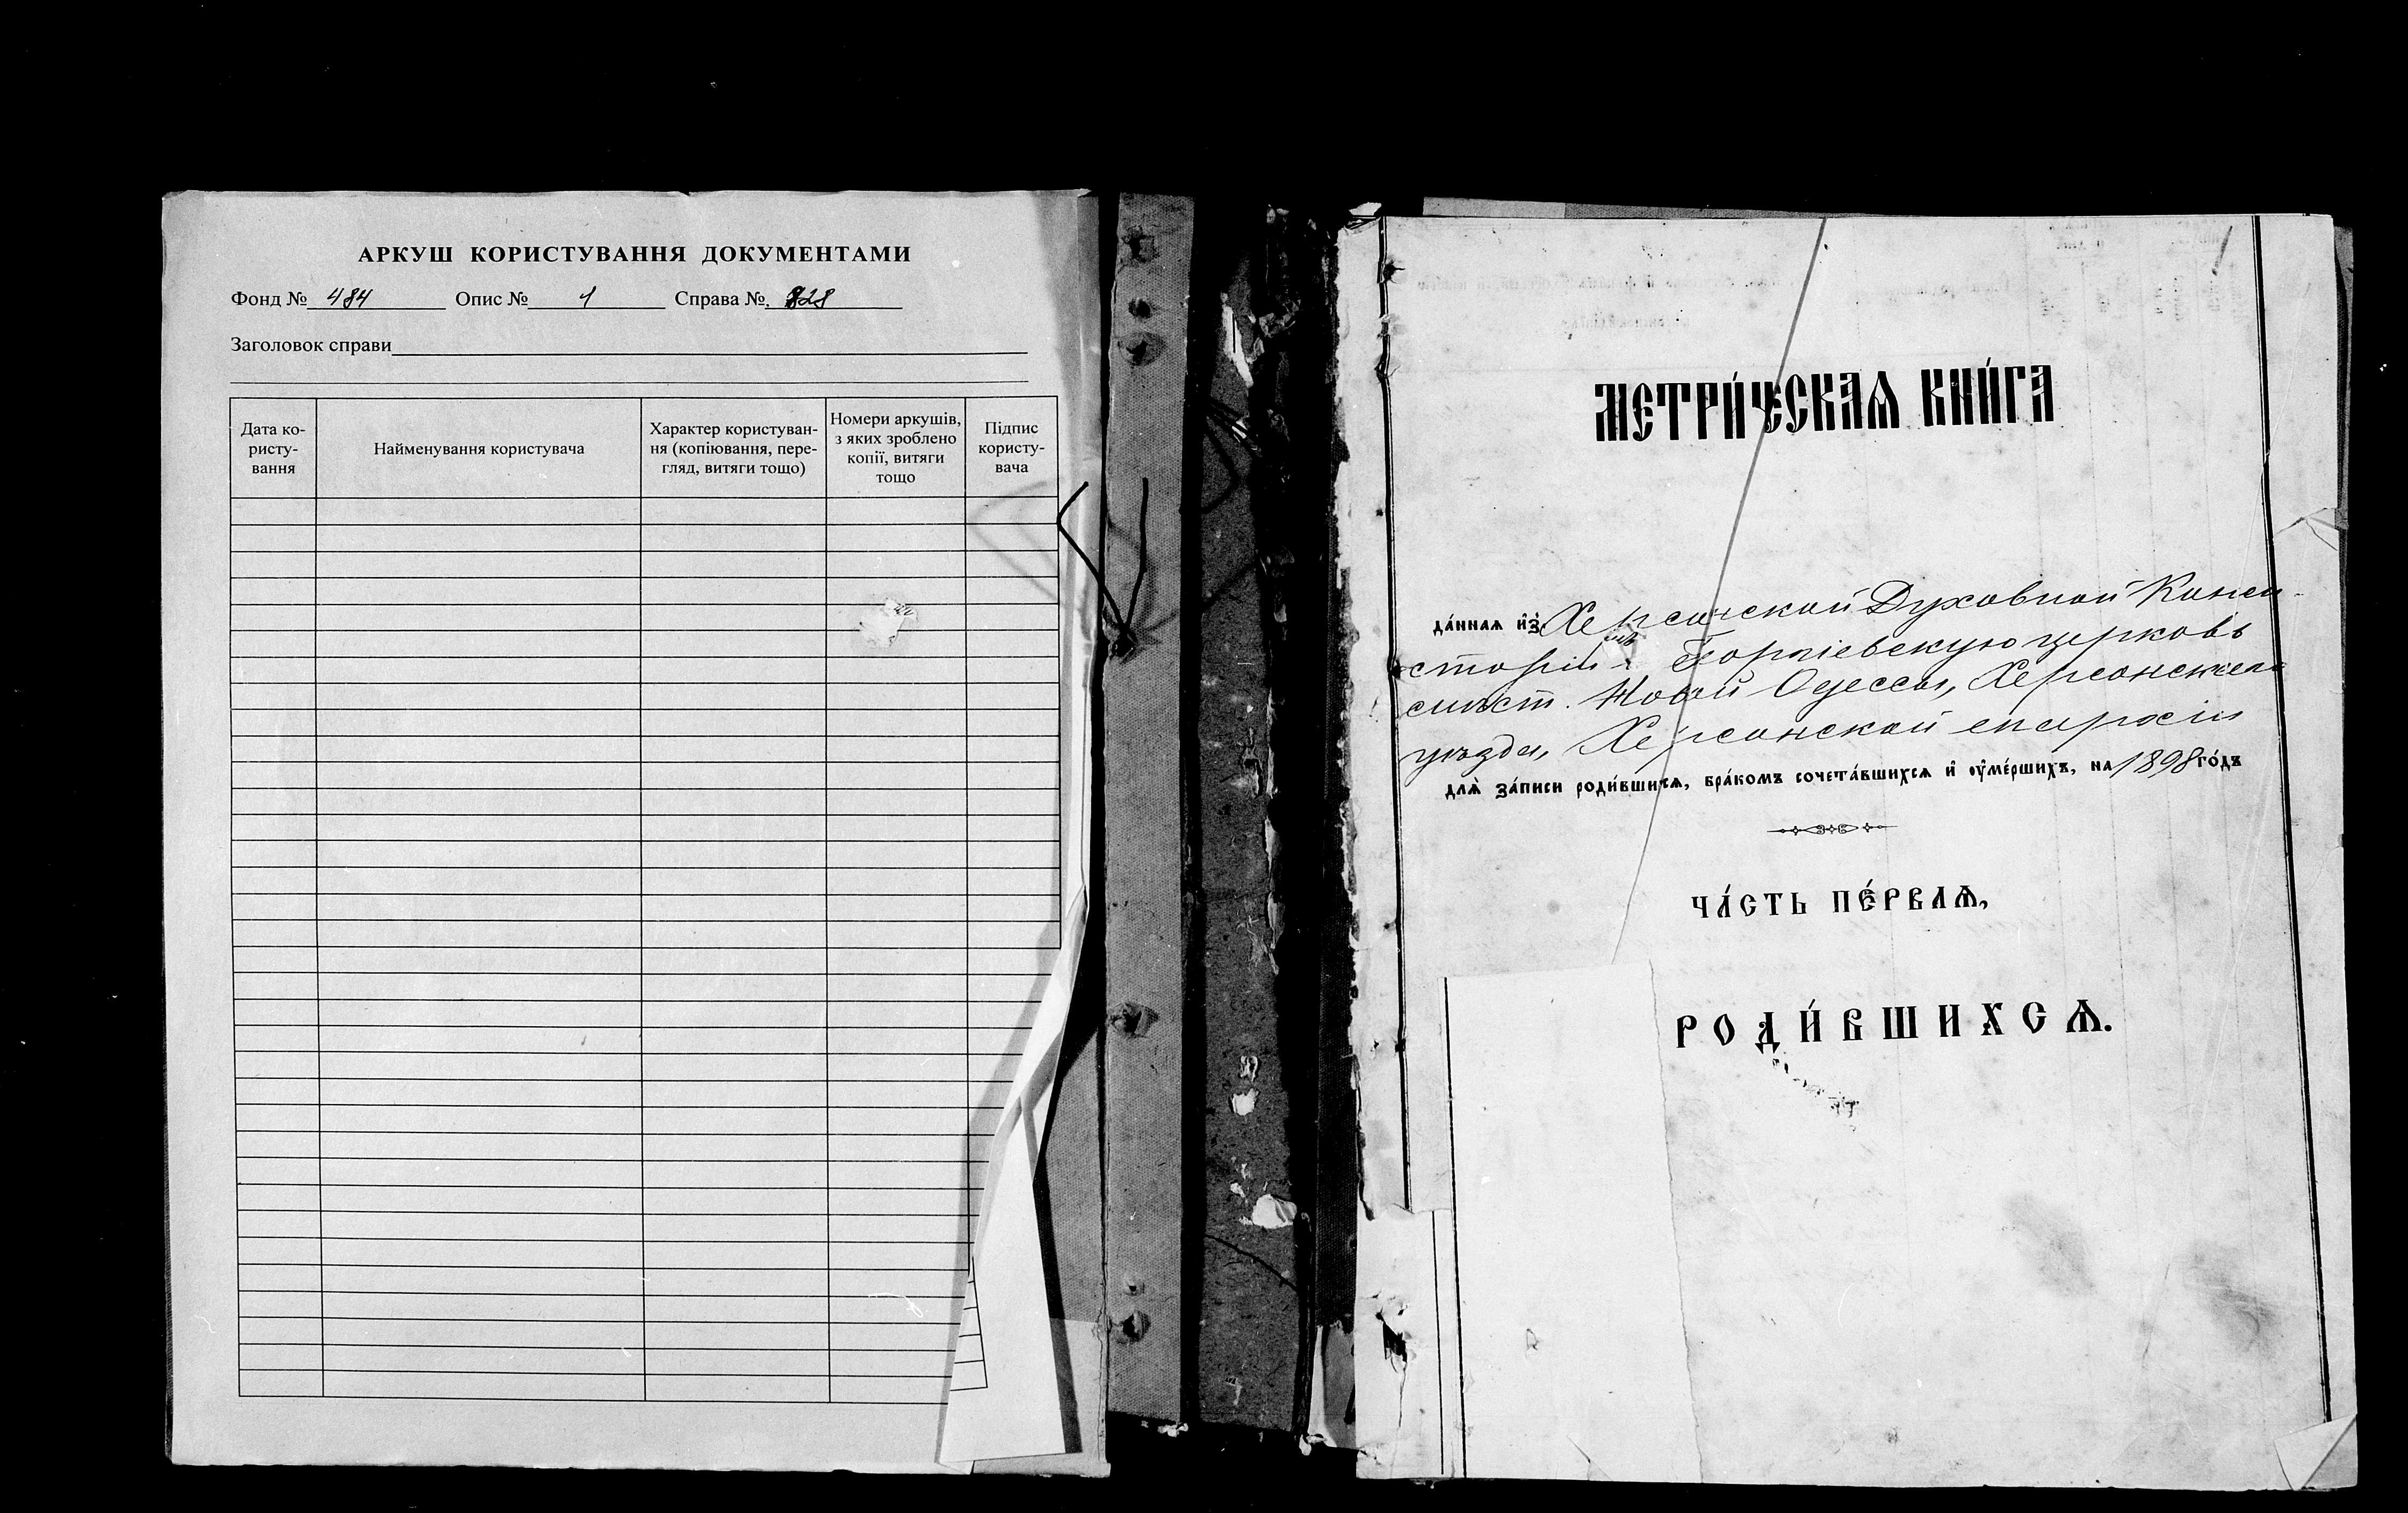 АРКУШ КОРИСТУВАННЯ ДОКУМЕНТАМИ
Фонд № 484 Опис № 1 Справа № 828
Заголовок справи
Дата ко-
ристу-
вання
Найменування користувача
Характер користуван-
ня (копіювання, пере-
гляд, витяги тощо)
Номери аркушів,
з яких зроблено
копії, витяги
тощо
Підпис
користу-
вача
1
МЕТРИ́ЧЕСКАѦ КНИ́ГА
да́ннаѧ и҆з̾ Херсонской Духовной Конси-
сторіи въ Георгіевскую церковь
мѣст. Новой Одессы, Херсонскаго
уѣзда, Херсонской епархіи
длѧ̀ за́писи роди́вшихсѧ, бра́комъ сочета́вшихсѧ и҆ ᲂу҆ме́ршихъ, на 1898 го́дъ
ЧА́СТЬ ПЕ́РВАѦ,
РОДИ́ВШИХСѦ.